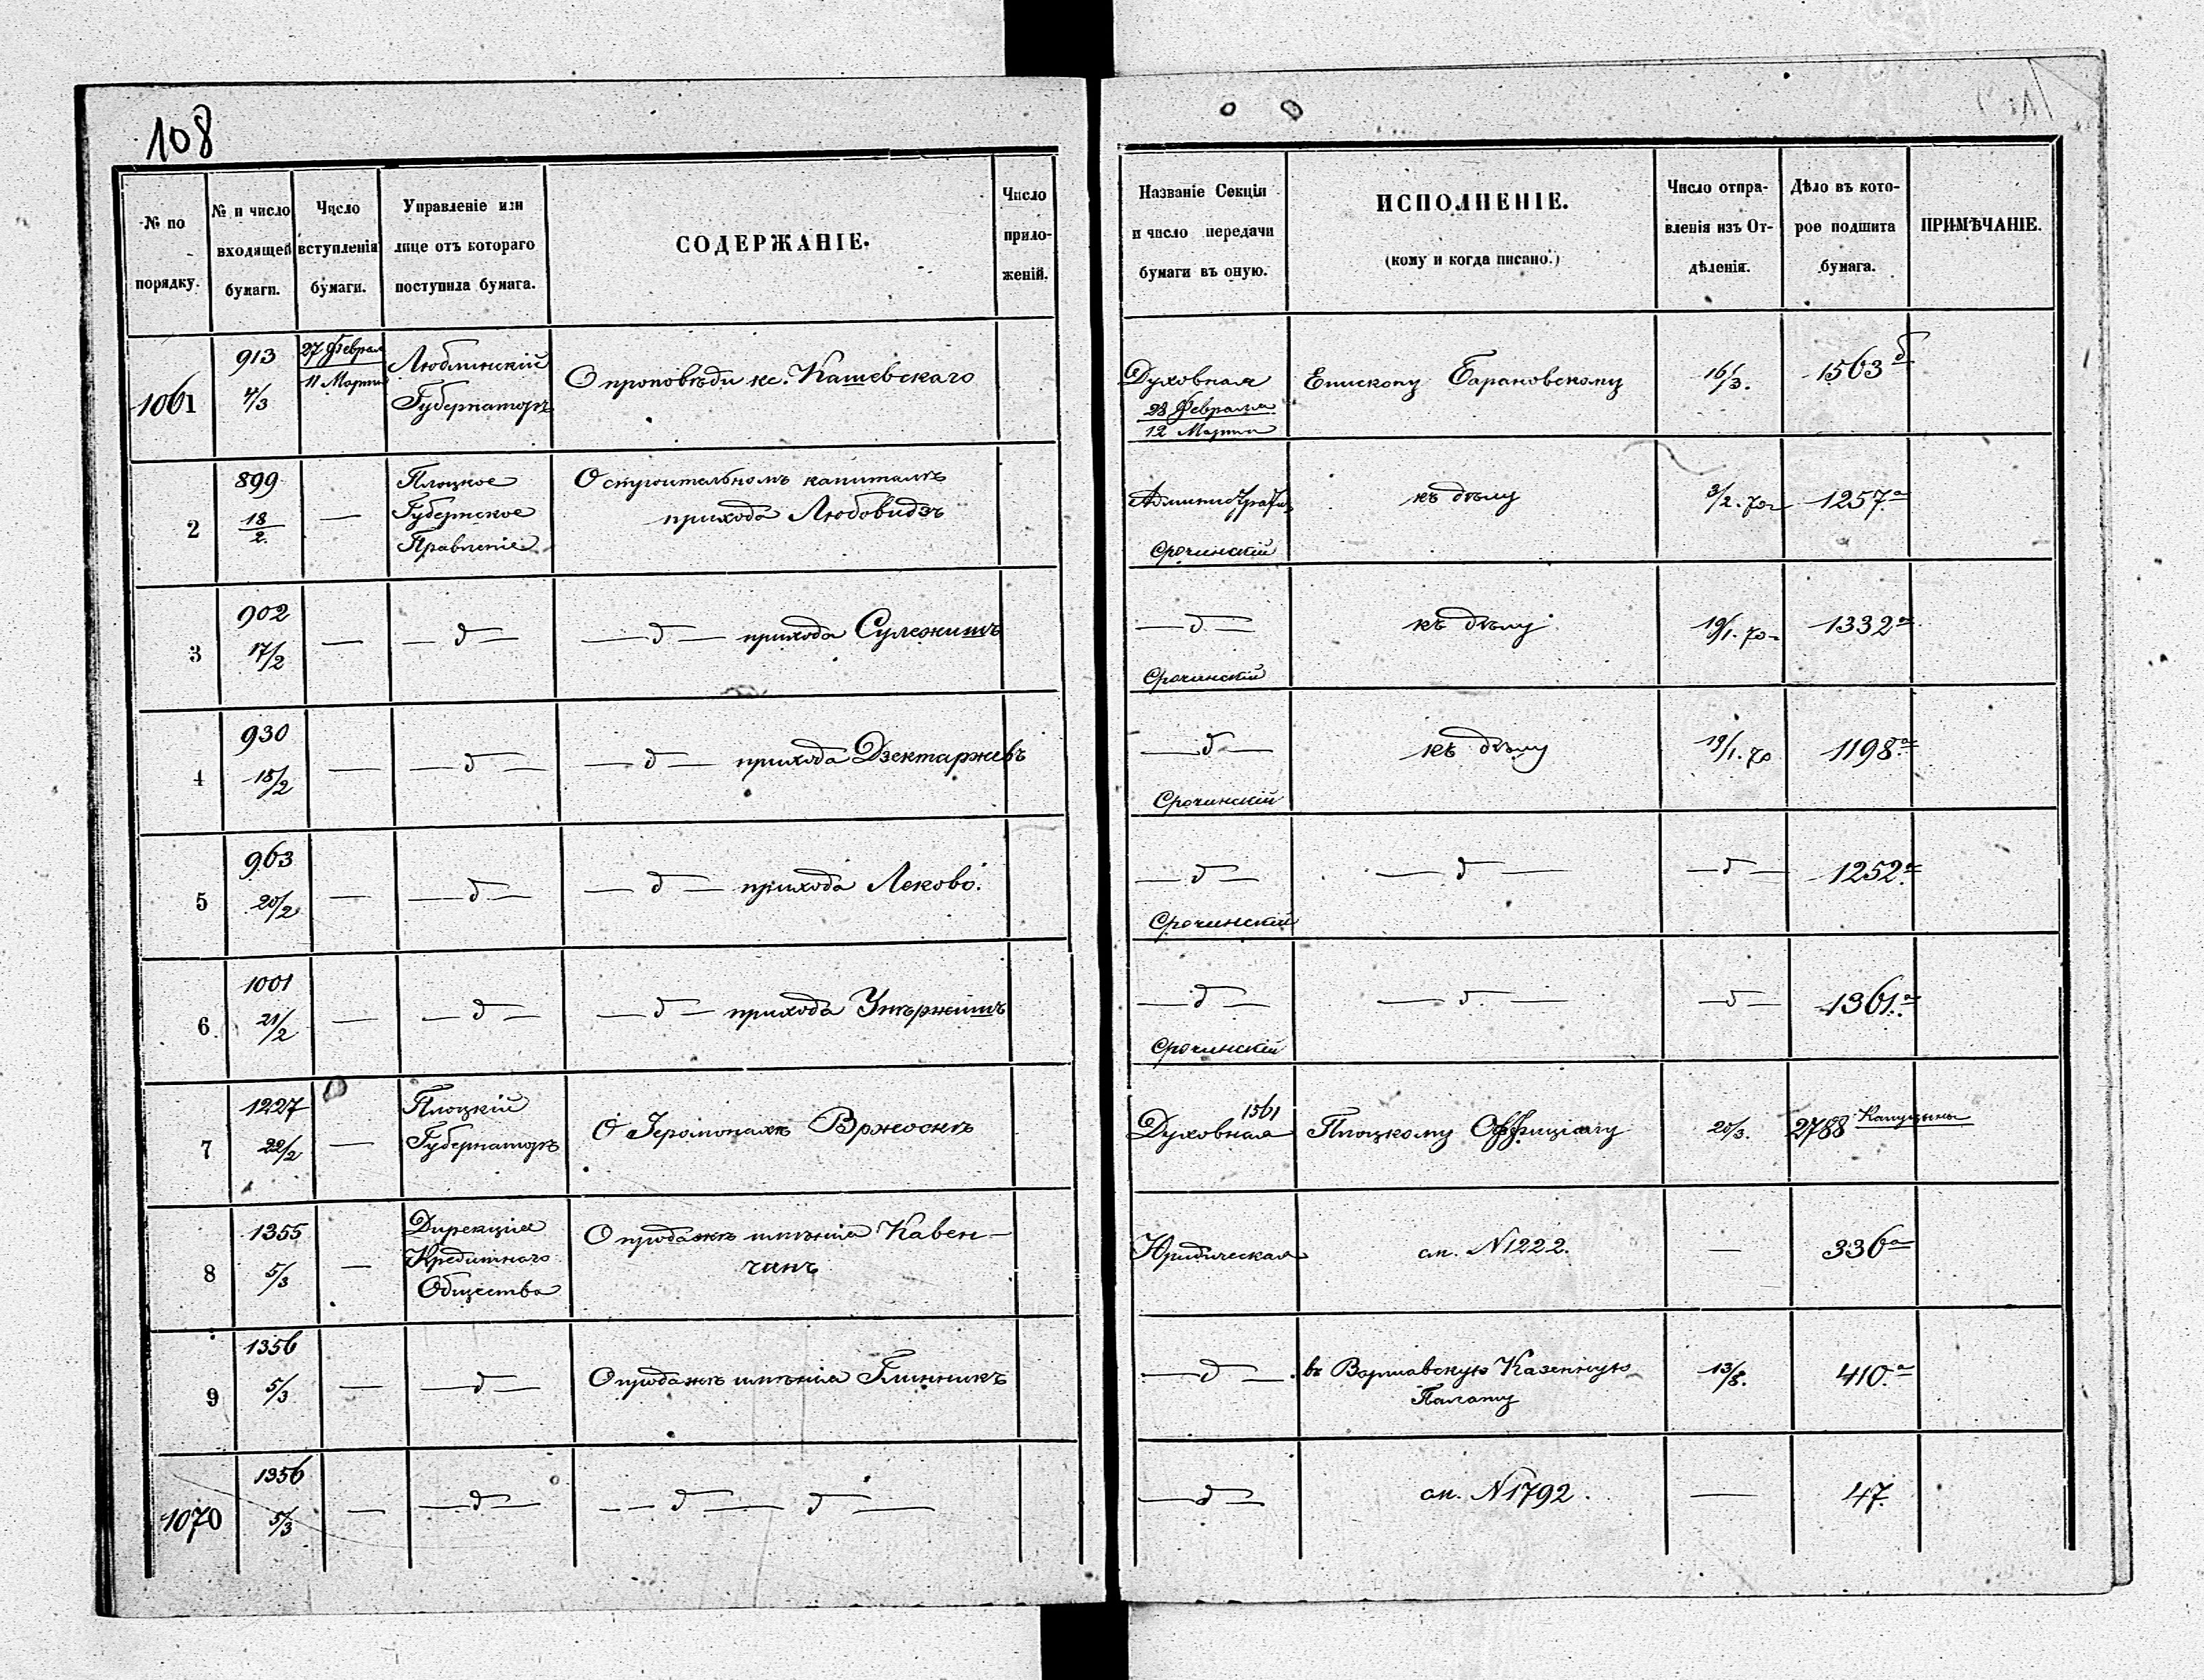 108
№ по порядку.
№ и число входящей бумаги.
Число вступленія бумаги.
Управленіе или лице отъ котораго поступила бумага.
СОДЕРЖАНІЕ.
Число приложеній.
Названіе Секціи и число передачи бумаги въ оную.
ИСПОЛНЕНІЕ.
(кому и когда писано.)
Число отправленія изъ Отдѣленія.
Дѣло въ которое подшита бумага.
ПРИМѢЧАНІЕ.
1061 913 4/3 27 Феврал 11 Марта Люблинскій Губернаторъ О проповѣди кс. Кашевскаго Духовная 28 Февраля 12 Марта Епископу Барановскому 16/3. 1563 б
2 899 18/2. — Плоцкое Губернское Правленіе О строительномъ капиталѣ прихода Любовидзъ Администрат. Срочинскій къ дѣлу 3/2. 70 1257 а
3 902 17/2 — — д — — д — прихода Сулежишъ — д — Срочинскій къ дѣлу 19/1. 70 1332 а
4 930 18/2 — — д — — д — прихода Дзектаржевъ — д — Срочинскій къ дѣлу 19/1. 70 1198 а
5 963 20/2 — — д — — д — прихода Леково. — д — Срочинскій — д — — д — 1252 а
6 1001 21/2 — — д — — д — прихода — д — Срочинскій — д — — д — 1361. а
7 1227 22/2 — Плоцкій Губернаторъ О Іеромонахѣ Вржоскѣ 1561 Духовная Плоцкому Оффиціалу 20/3. 2788 Капуцыны
8 1355 5/3 — Дирекція Кредитнаго Общества О продажѣ имѣнія Кавен-чинъ Юридическая см. N 1222. — 336 а
9 1356 5/3 — — д — О продажѣ имѣнія Глинникъ — д — въ Варшавскую Казенную Палату 13/8. 410. а
1070 1356 5/3 — — д — — — д — д — — д — см. N 1792. — 47.